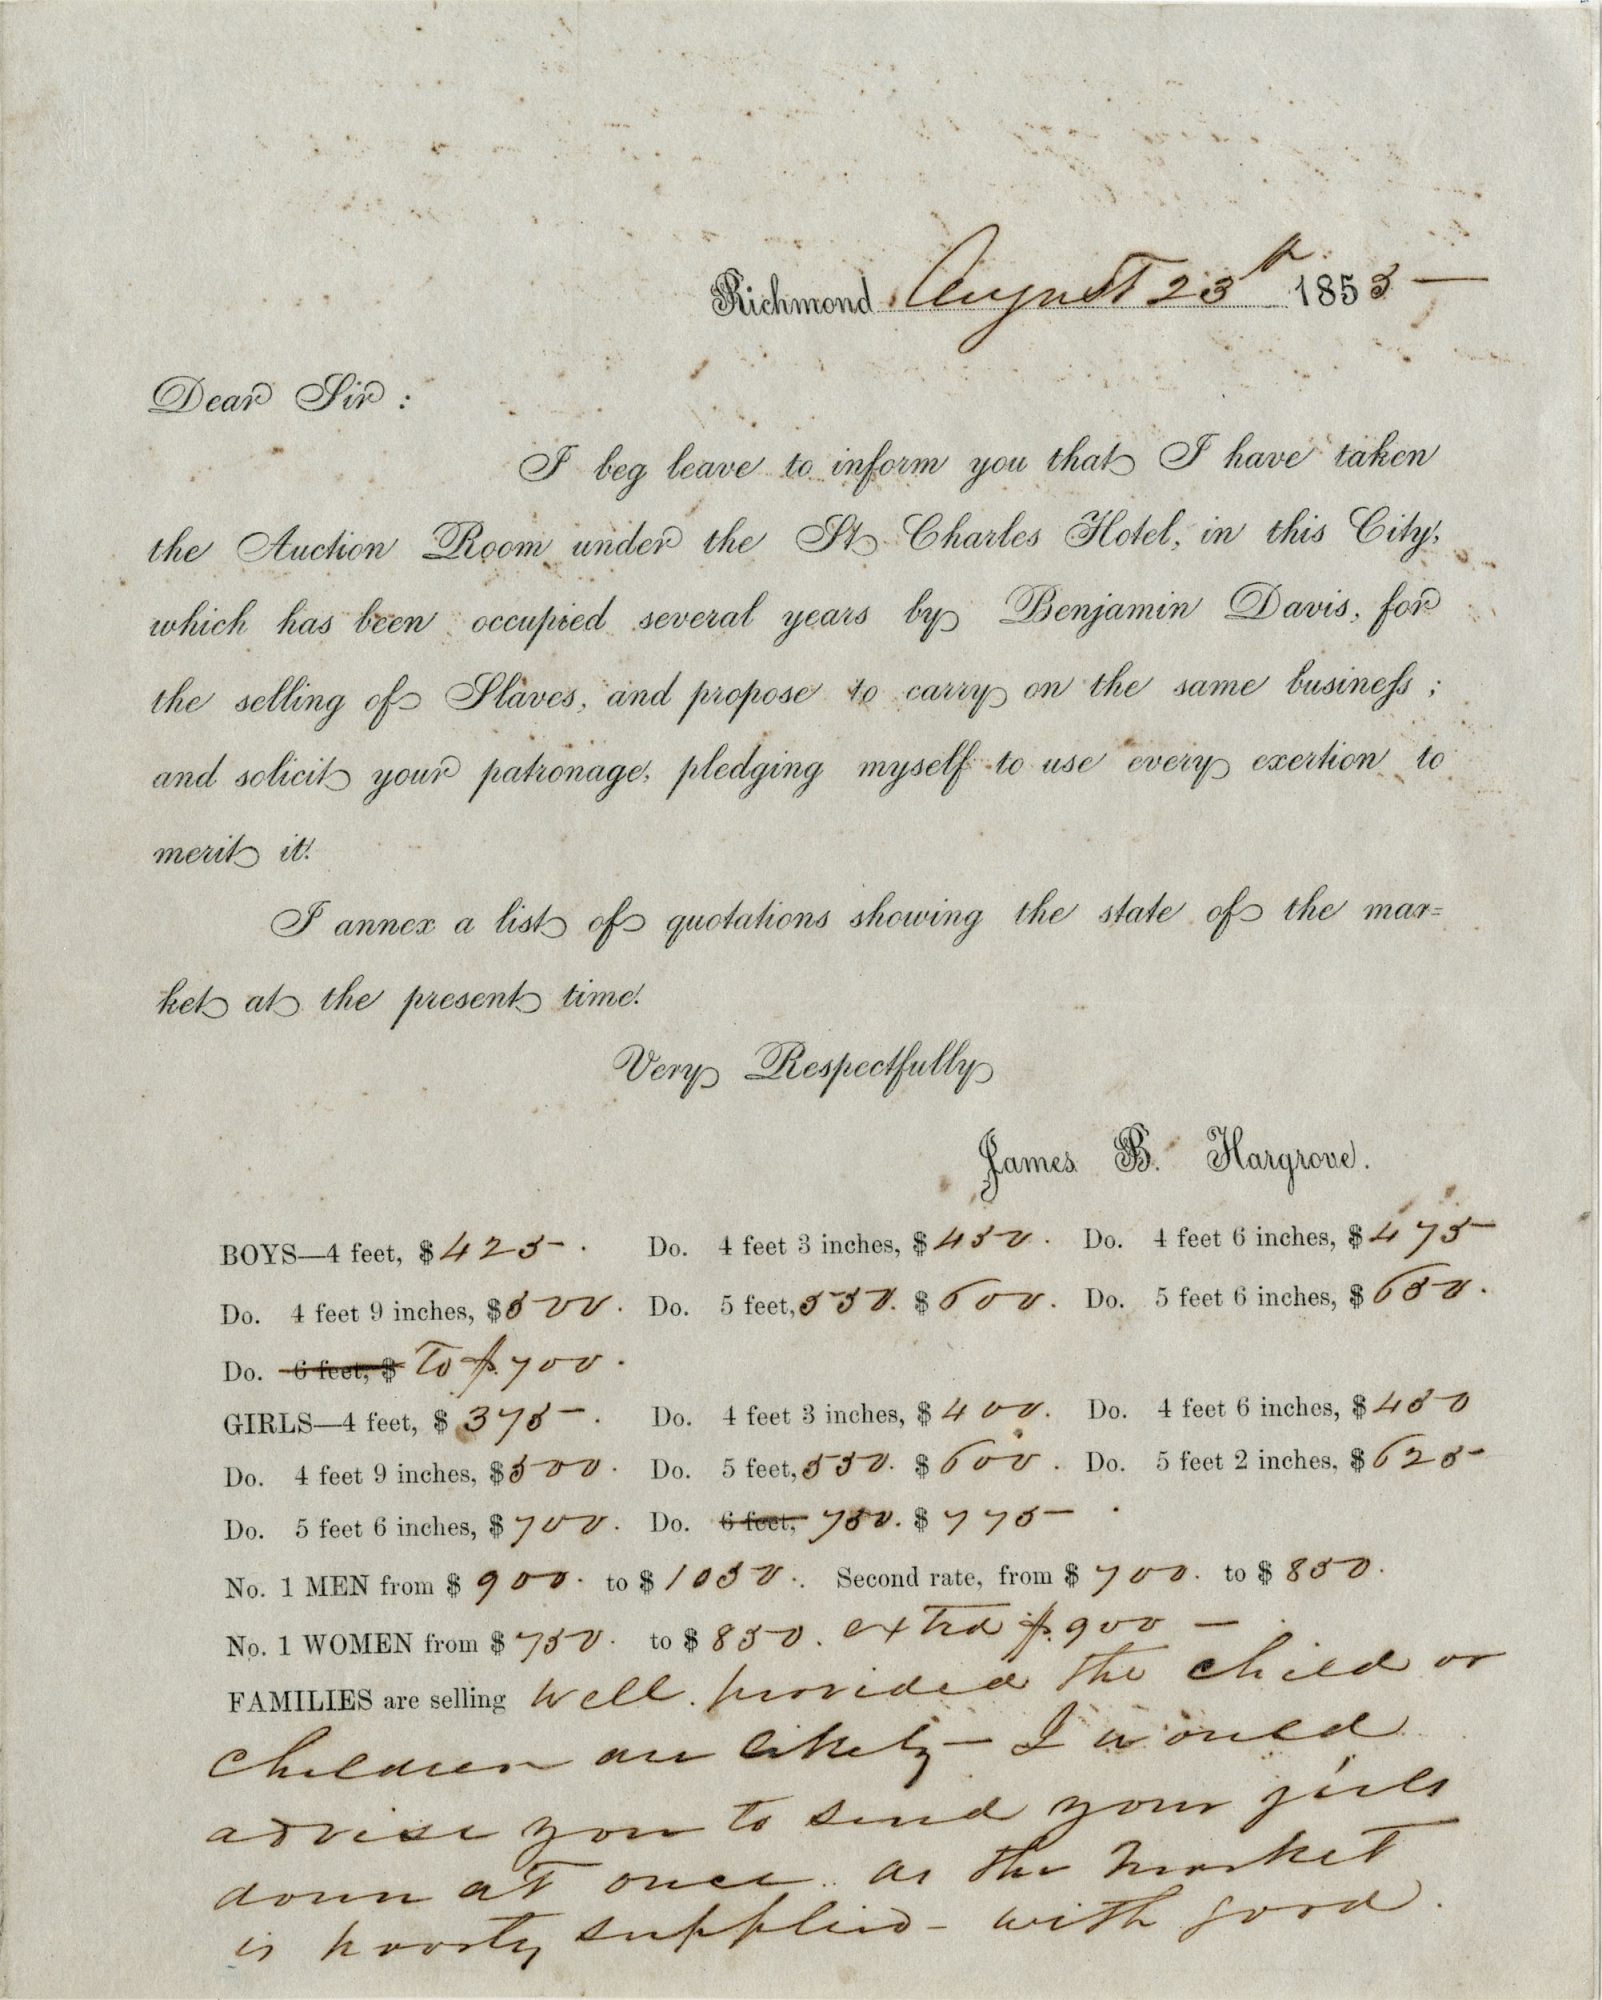 Richmond August 23d 1853 —
Dear Sir :
I beg leave to inform you that I have taken
the Auction Room under the St Charles Hotel, in this City,
which has been occupied several years by Benjamin Davis, for
the selling of Slaves, and propose to carry on the same business ;
and solicit your patronage, pledging myself to use every exertion to
merit it.
I annex a list of quotations showing the state of the mar=
ket at the present time.
Very Respectfully
James B. Hargrove.
BOYS—4 feet, $ 425 . Do. 4 feet 3 inches, $ 450 . Do. 4 feet 6 inches, $ 475
Do. 4 feet 9 inches, $ 500 . Do. 5 feet, 550. $ 600 . Do. 5 feet 6 inches, $ 650 .
Do. 6 feet, $ To $ 700 .
GIRLS—4 feet, $ 375 . Do. 4 feet 3 inches, $ 400 . Do. 4 feet 6 inches, $ 450
Do. 4 feet 9 inches, $ 500 . Do. 5 feet, 550. $ 600 . Do. 5 feet 2 inches, $ 625
Do. 5 feet 6 inches, $ 700 . Do. 6 feet, 750. $ 775 .
No. 1 MEN from $ 900. to $ 1050. Second rate, from $ 700. to $ 850.
No. 1 WOMEN from $ 750. to $ 850. extra $ 900 —
FAMILIES are selling well. provided the child or
children are likely — I would
advise you to send your girls
down at once as the market
is poorly supplied - with good .